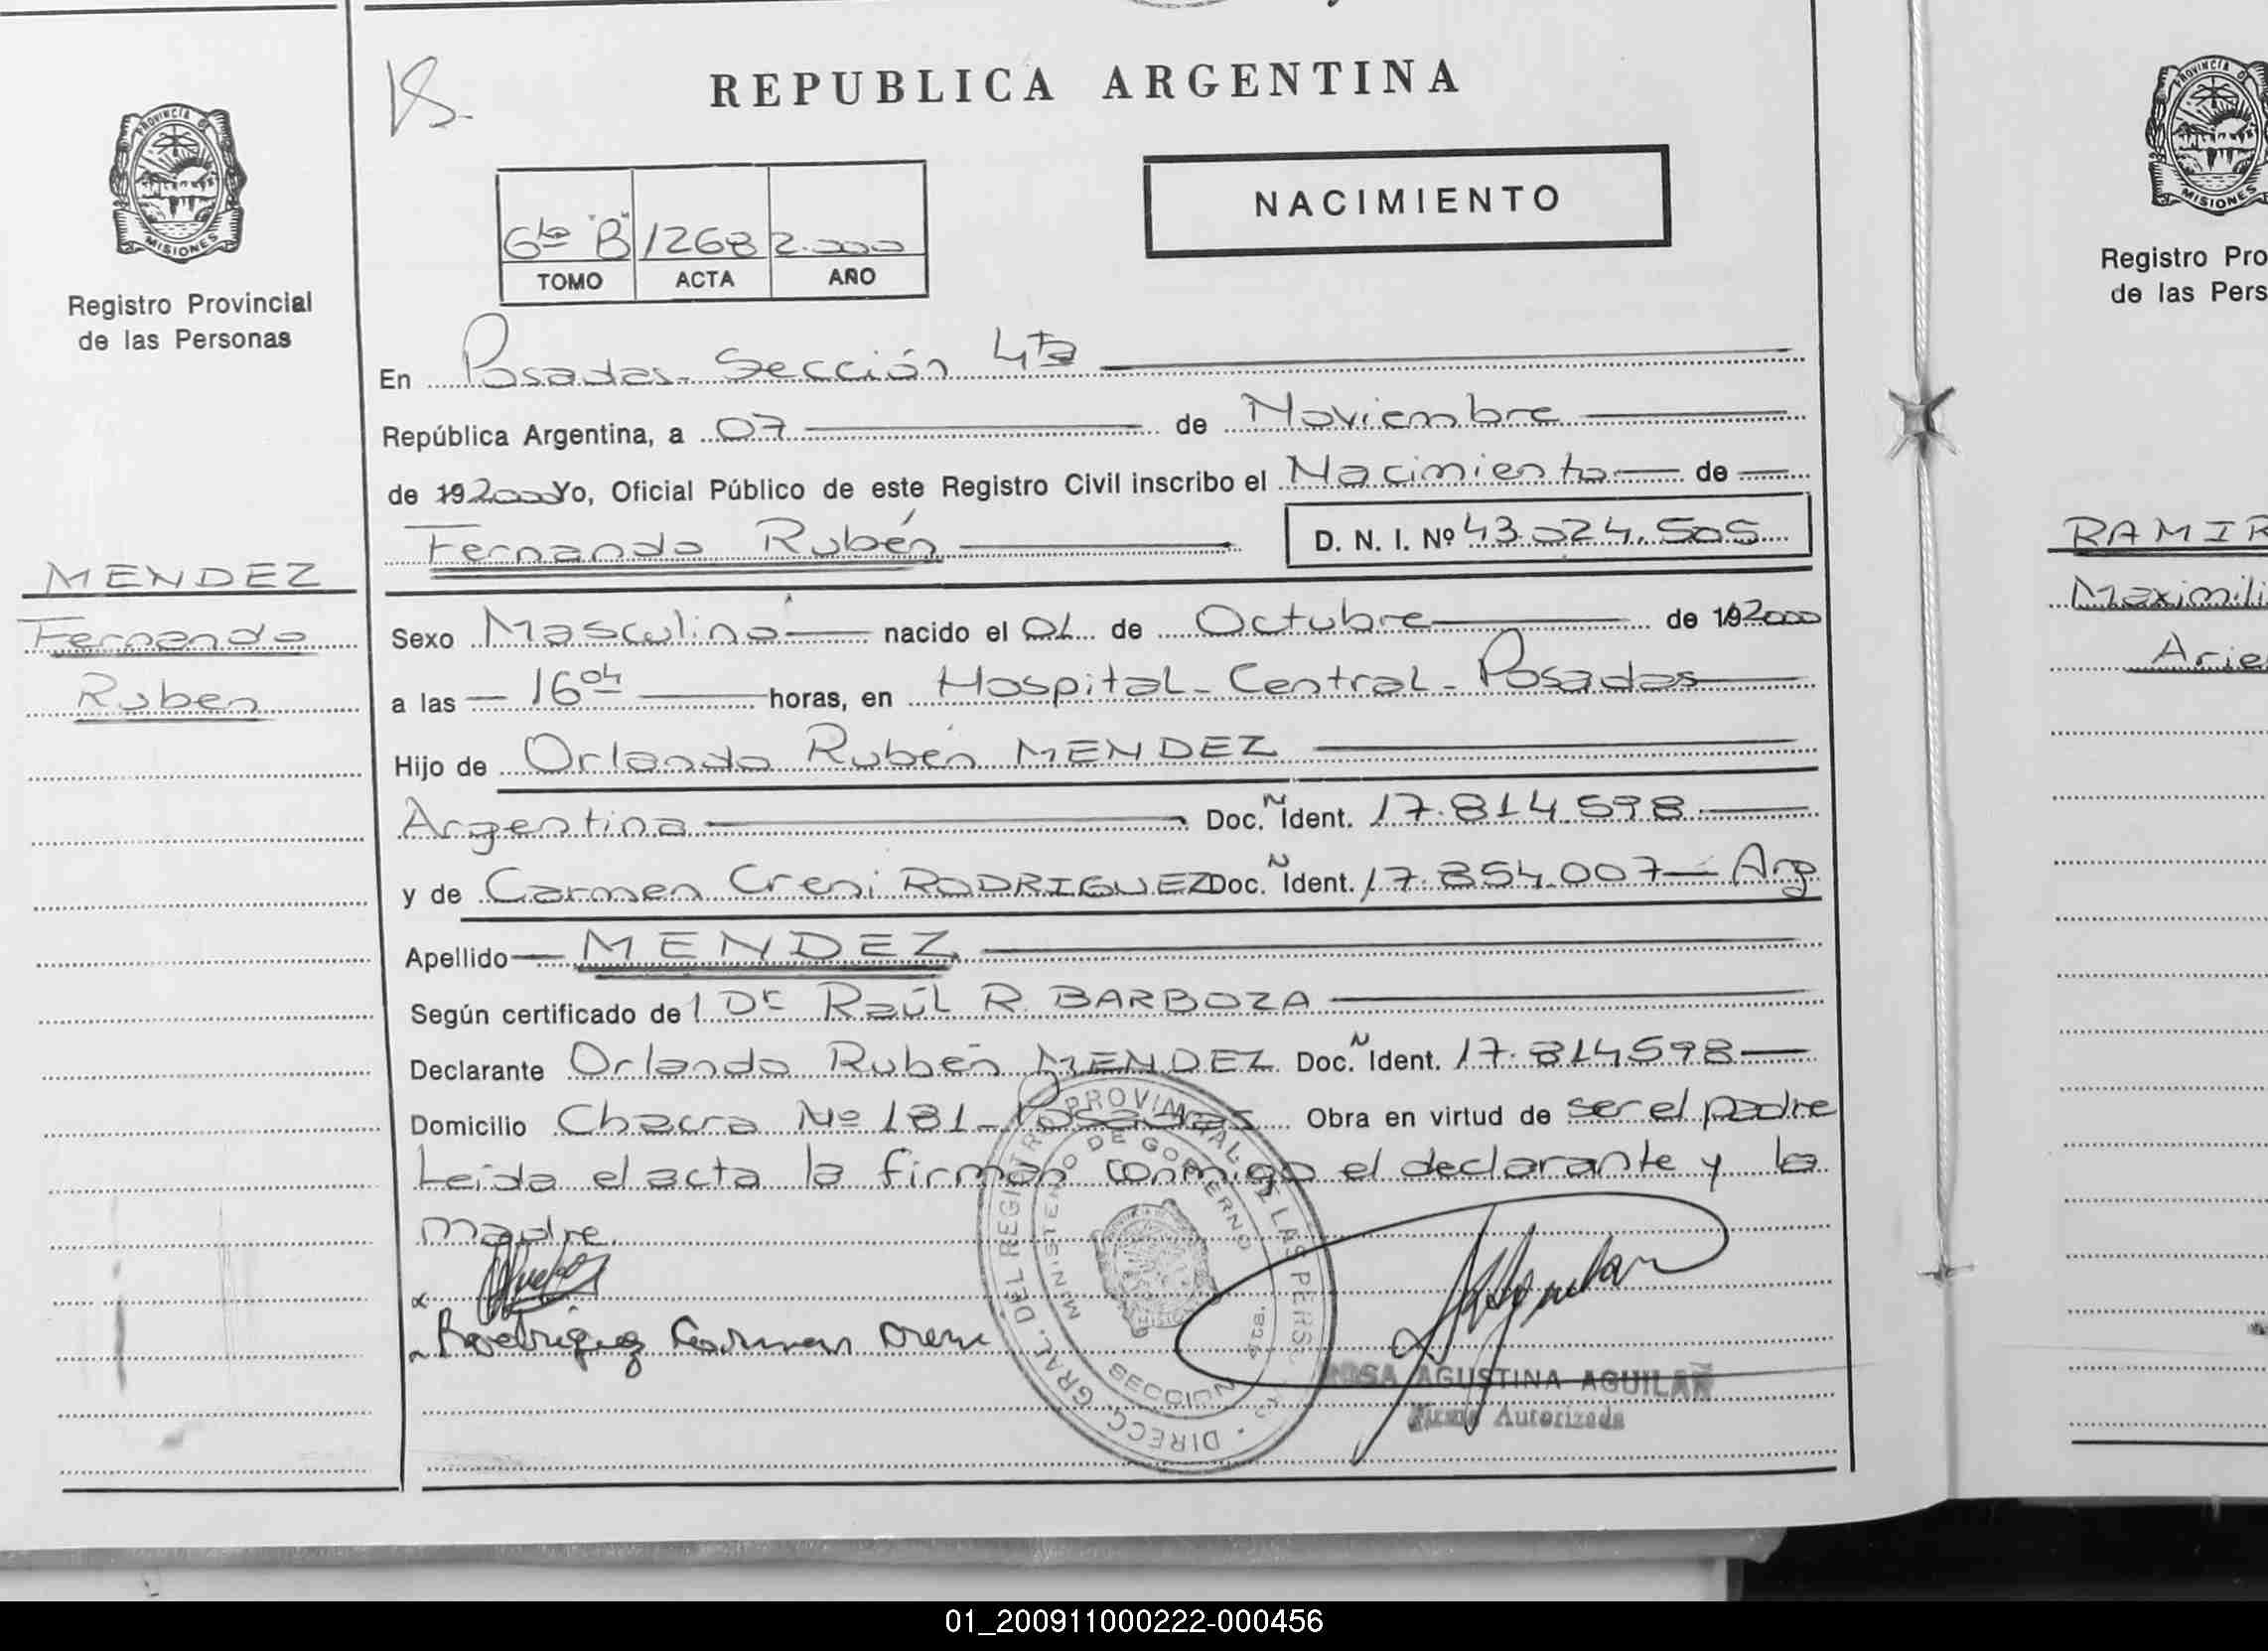 REPUBLICA ARGENTINA
PROVINCIA D
MISIONES
Registro Provincial
de las Personas
MENDEZ
Fernando
Ruben
NACIMIENTO
6to "B" 1268 2.000
TOMO ACTA AÑO
En Posadas - Sección 4ta
República Argentina, a 07 de Noviembre
de 192000 Yo, Oficial Público de este Registro Civil inscribo el Nacimiento de
Fernando Rubén D. N. I. Nº 43.024.505
Sexo Masculino nacido el 01 de Octubre de 192000
a las 16 04 horas, en Hospital Central - Posadas
Hijo de Orlando Rubén MENDEZ
Argentina Doc. Ñ Ident. 17.814.598
y de Carmen Creni RODRIGUEZ Doc. Ñ Ident. 17.854.007 - Arg
Apellido MENDEZ
Según certificado del Dr Raúl R. BARBOZA
Declarante Orlando Rubén MENDEZ Doc. Ñ Ident. 17.814598
Domicilio Chacra Nº 181 - Posadas Obra en virtud de ser el padre
Leida el acta la firman conmigo el declarante y la
madre
Rodriguez Carmen
DIRECC. GRAL. DEL REGISTRO PROVINCIAL DE LAS PERS
MINISTERIO DE GOBIERNO
SECCION 4ta.
ROSA AGUSTINA AGUILAR
Firma Autorizada
PROVINCIA D
MISIONES
Registro Pro
de las Pers
RAMIR
Maximili
Arie
01_200911000222-000456